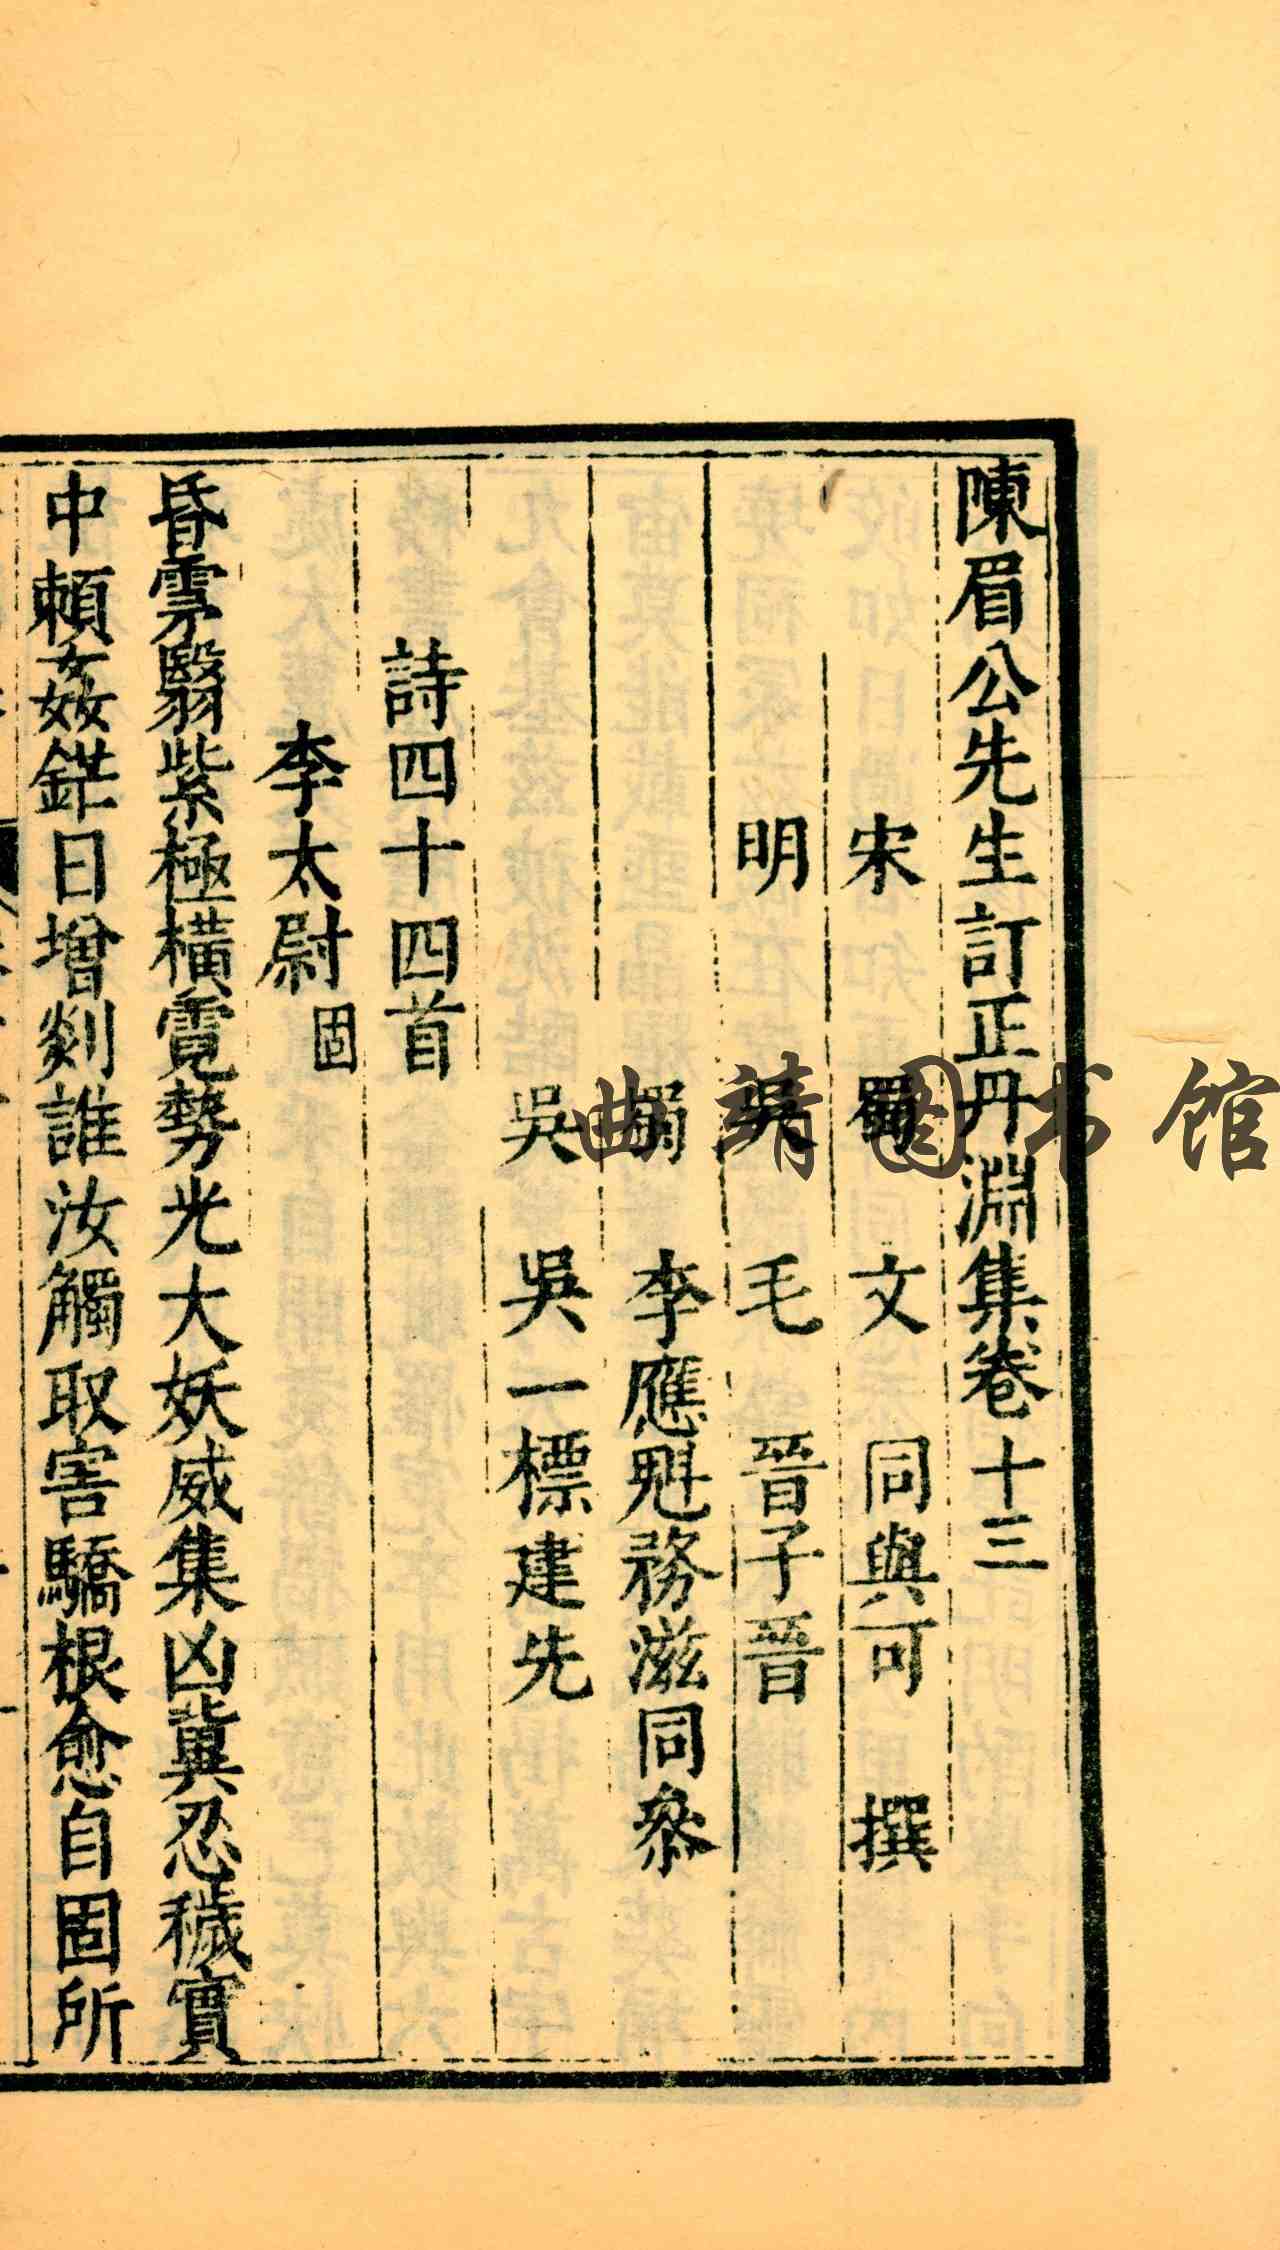 陳眉公先生訂正丹淵集卷十三
宋 蜀 文 同與可 撰
明 吳 毛 晉子晉
蜀 李應魁務滋同叅
吳 吳一標建先
詩四十四首
李太尉固
昏雰翳紫極橫霓勢光大妖威集凶冀忍穢實
中頼姦錐日增剡誰汝觸取害驕根愈自固所
曲靖图书馆